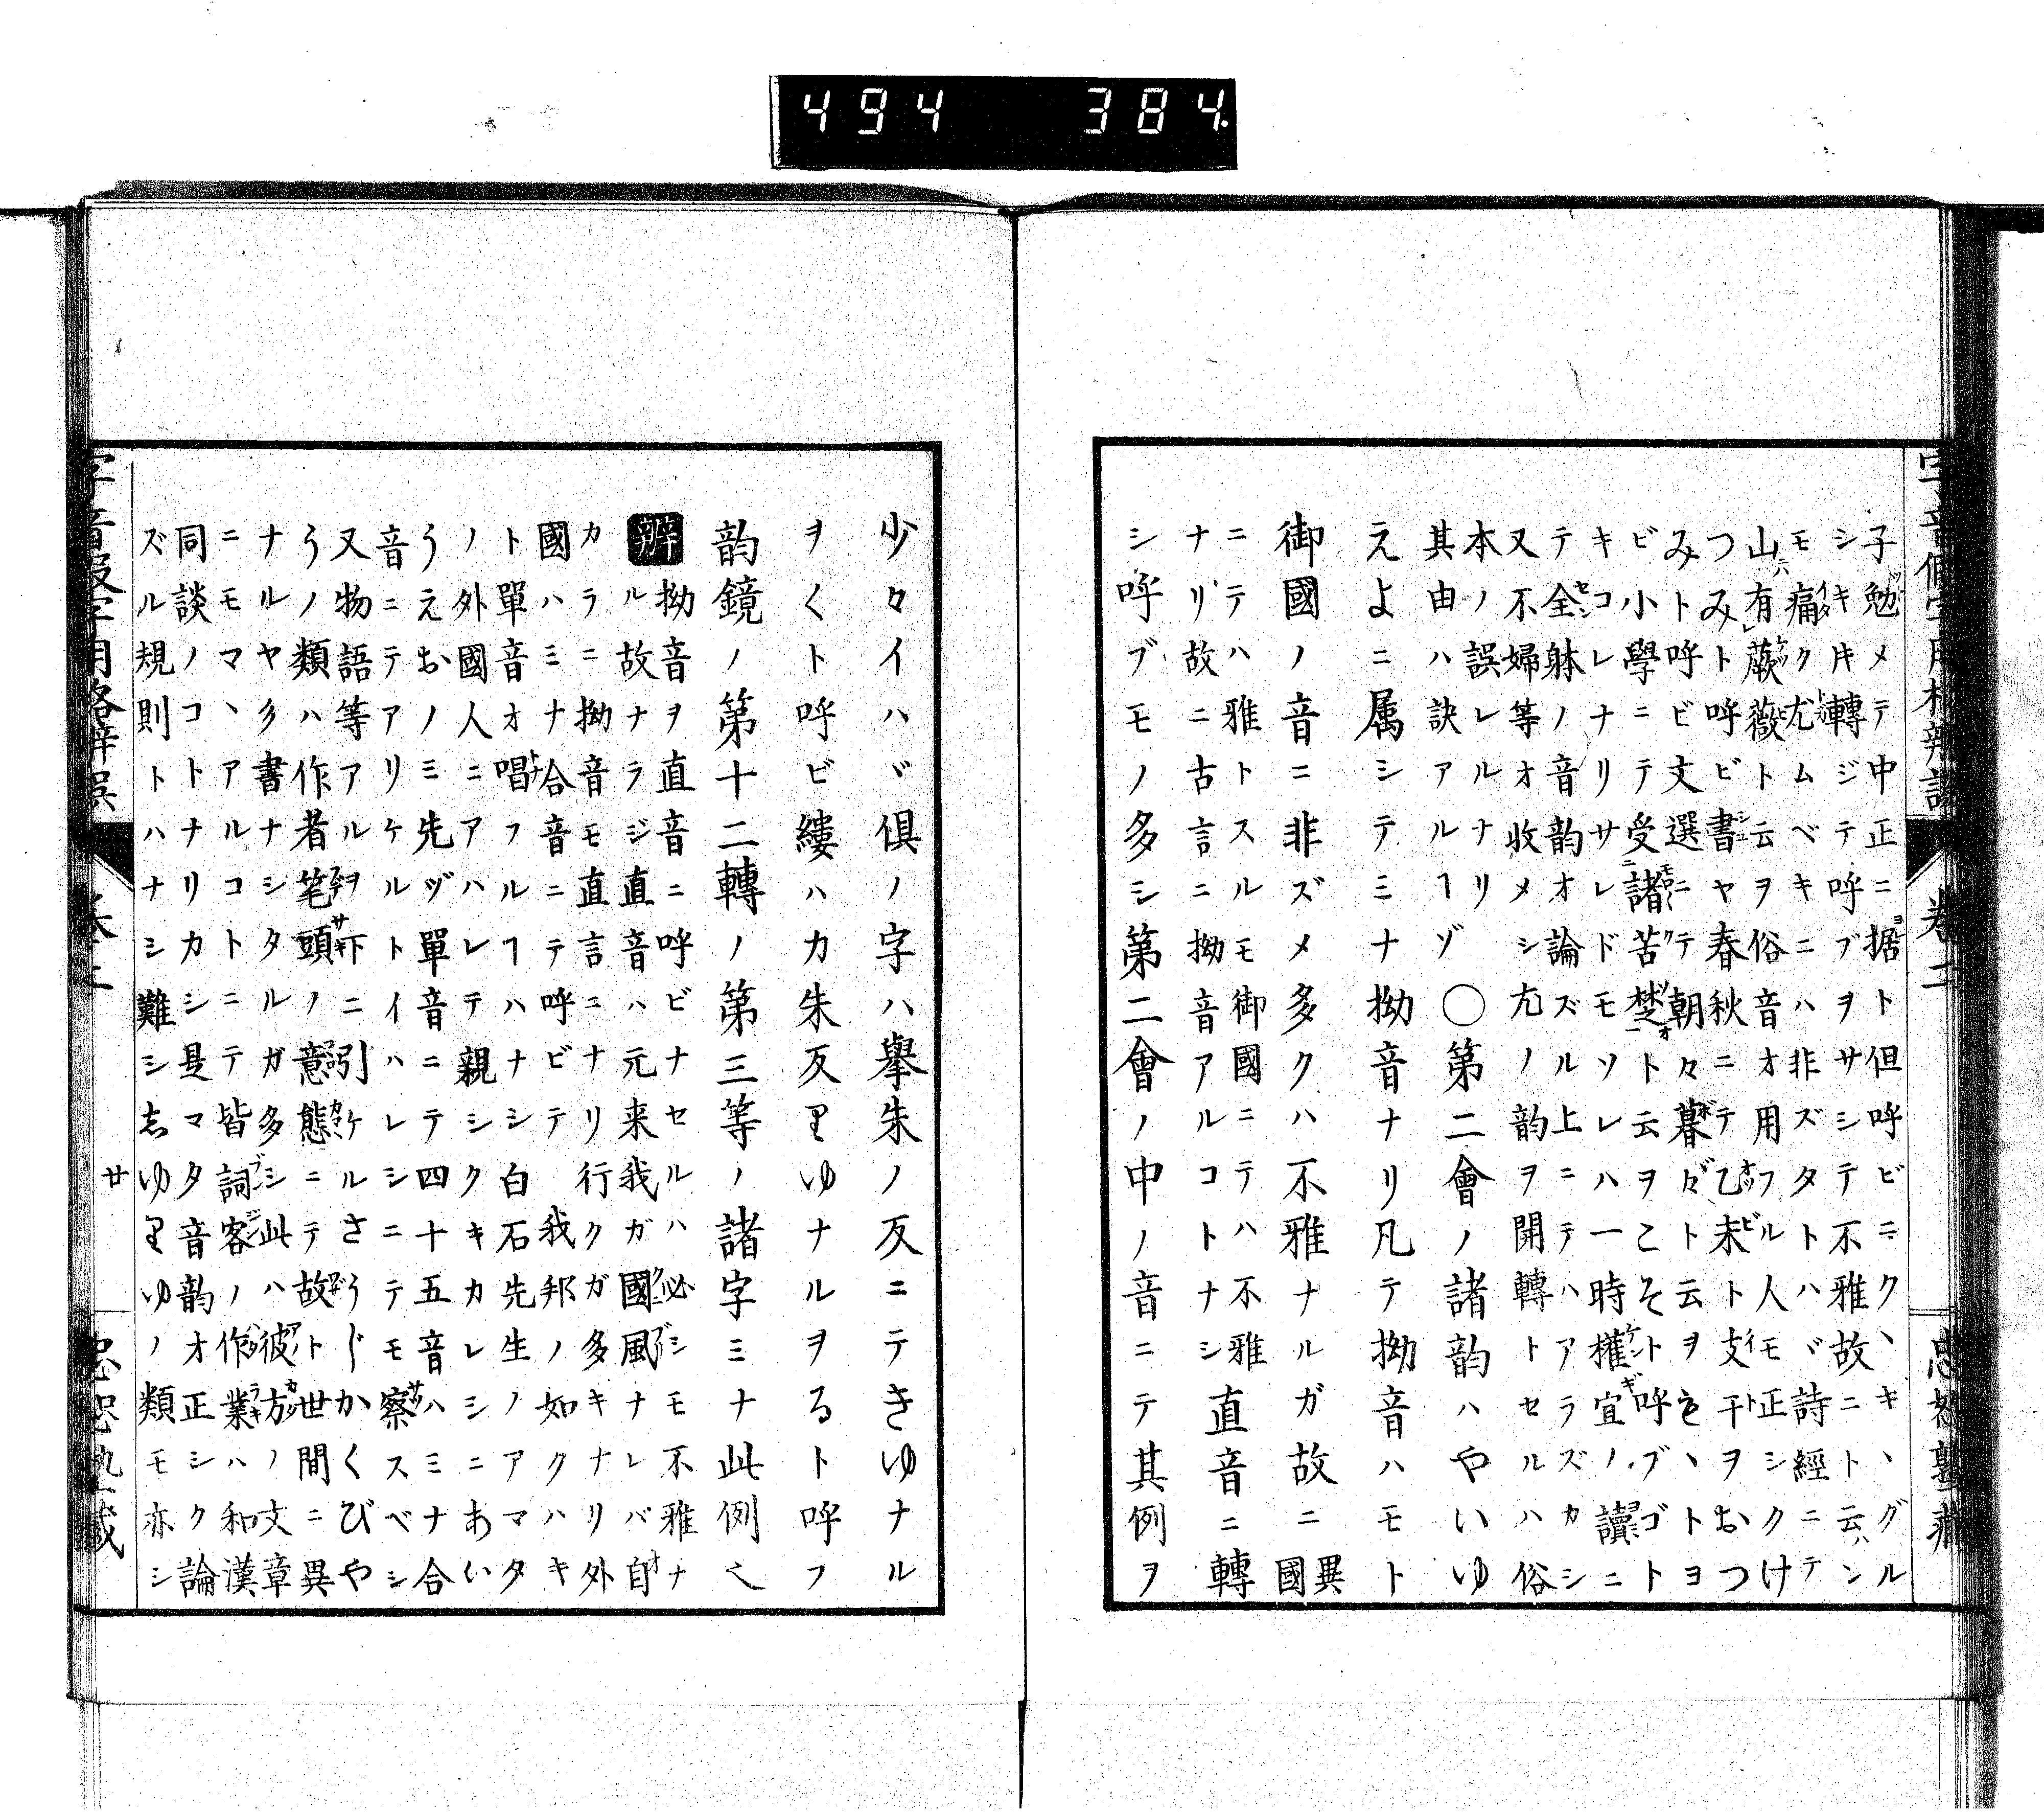 494 384.
子勉メテ中正ニ据ト但呼ビニクヽキヽグル
シキ片轉ジテ呼ブヲサシテ不雅故ニト云ン
モ痛ク尤ムベキニハ非ズタトハバ詩經ニテ
山有蕨薇ト云ヲ俗音オ用フル人モ正シクけ
つみト呼ビ書ヤ春秋ニテ乙未ト支干ヲおつ
みト呼ビ文選ニテ朝々暮々ト云ヲもヽトヨ
ビ小學ニテ受諸苦楚ト云ヲこそト呼ブゴト
キコレナリサレドモソレハ一時權宜ノ讀ニ
テ全躰ノ音韵オ論ズル上ニテハアラズカシ
又不婦等オ收メシ尤ノ韵ヲ開轉トセルハ俗
本ノ誤レルナリ
其由ハ訣アルヿゾ〇第二會ノ諸韵ハやいゆ
えよニ属シテミナ拗音ナリ凡テ拗音ハモト
御國ノ音ニ非ズメ多クハ不雅ナルガ故ニ異國
ニテハ雅トスルモ御國ニテハ不雅
ナリ故ニ古言ニ拗音アルコトナシ直音ニ轉
シ呼ブモノ多シ第二會ノ中ノ音ニテ其例ヲ
少々イハヾ倶ノ字ハ擧朱ノ反ニテきゆナル
ヲくト呼ビ縷ハカ朱反りゆナルヲるト呼フ
韵鏡ノ第十二轉ノ第三等ノ諸字ミナ此例也
辨拗音ヲ直音ニ呼ビナセルハ必シモ不雅ナ
ル故ナラジ直音ハ元来我ガ國風ナレバ自
カラニ拗音モ直言ニナリ行クガ多キナリ外
國ハミナ合音ニテ呼ビテ我邦ノ如クハキ
ト單音オ唱フルヿハナシ白石先生ノアマタ
ノ外國人ニアハレテ親シクキカレシニあい
うえおノミ先ヅ單音ニテ四十五音ハミナ合
音ニテアリケルトイハレシニテモ察スベシ
又物語等アルヲ下ニ引ケルさうじかくびや
うノ類ハ作者笔頭ノ意態ニテ故ト世間ニ異
ナルヤク書ナシタルガ多シ此ハ彼方ノ文章
ニモマヽアルコトニテ皆詞客ノ作業ハ和漢
同談ノコトナリカシ是マタ音韵オ正シク論
ズル規則トハナシ難シしゆりゆノ類モ亦シ
字音假字用格辨誤 卷二
廿
忠恕塾藏